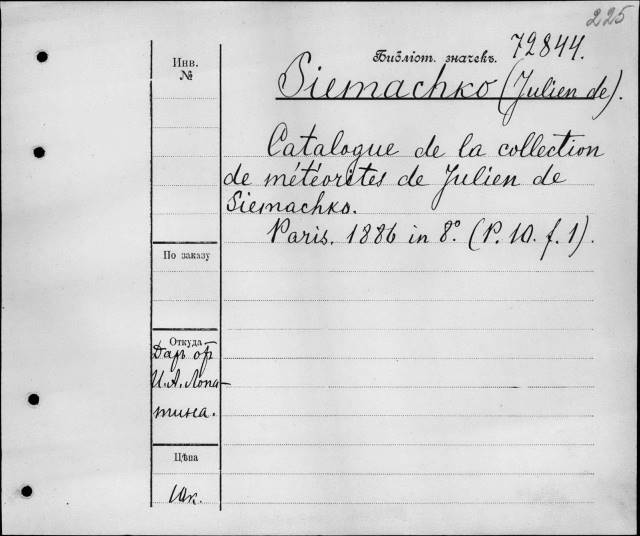 225
Библіот. значекъ. 72844.
Инв.
№
Siemachko (Julien de).
Catalogue de la collection
de météorites de Julien de
Siemachko.
Paris. 1886 in 8°. (P. 10. f. 1).
По заказу
Откуда
Даръ от
И. А. Лопа-
тина.
Цѣна
10к.